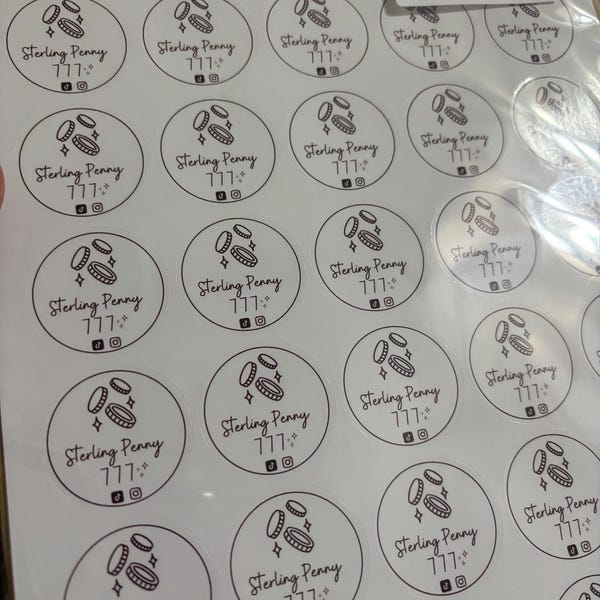 Sterling Penny
777
Sterling Penny
777
Sterling Penny
777
Sterling Penny
777
Sterling Penny
777
Sterling Penny
777
Sterling Penny
777
Sterling Penny
777
Sterling Penny
777
Sterling Penny
777
Sterling Penny
777
Sterling Penny
777
Sterling Penny
777
Sterling Penny
777
Sterling Penny
777
Sterling Penny
777
Sterling Penny
777
Sterling Penny
777
Sterling Penny
777
Sterling Penny
777